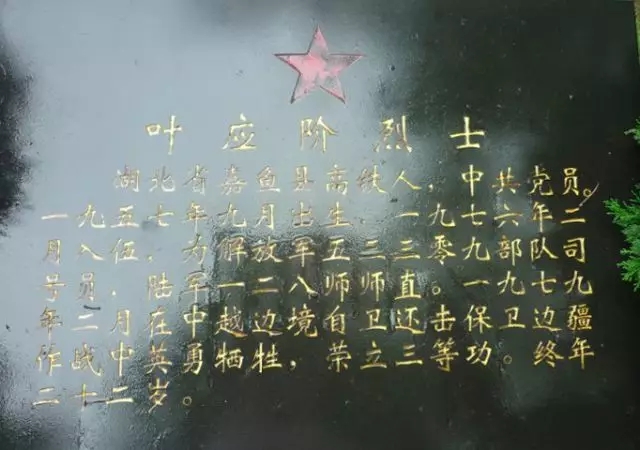 叶应阶烈士
湖北省嘉鱼县高铁人，中共党员。
一九五七年九月出生，一九七六年二
月入伍，为解放军五二三零九部队司
号员，陆军一二八师师直。一九七九
年二月在中越边境自卫还击保卫边疆
作战中英勇牺牲，荣立三等功。终年
二十二岁。